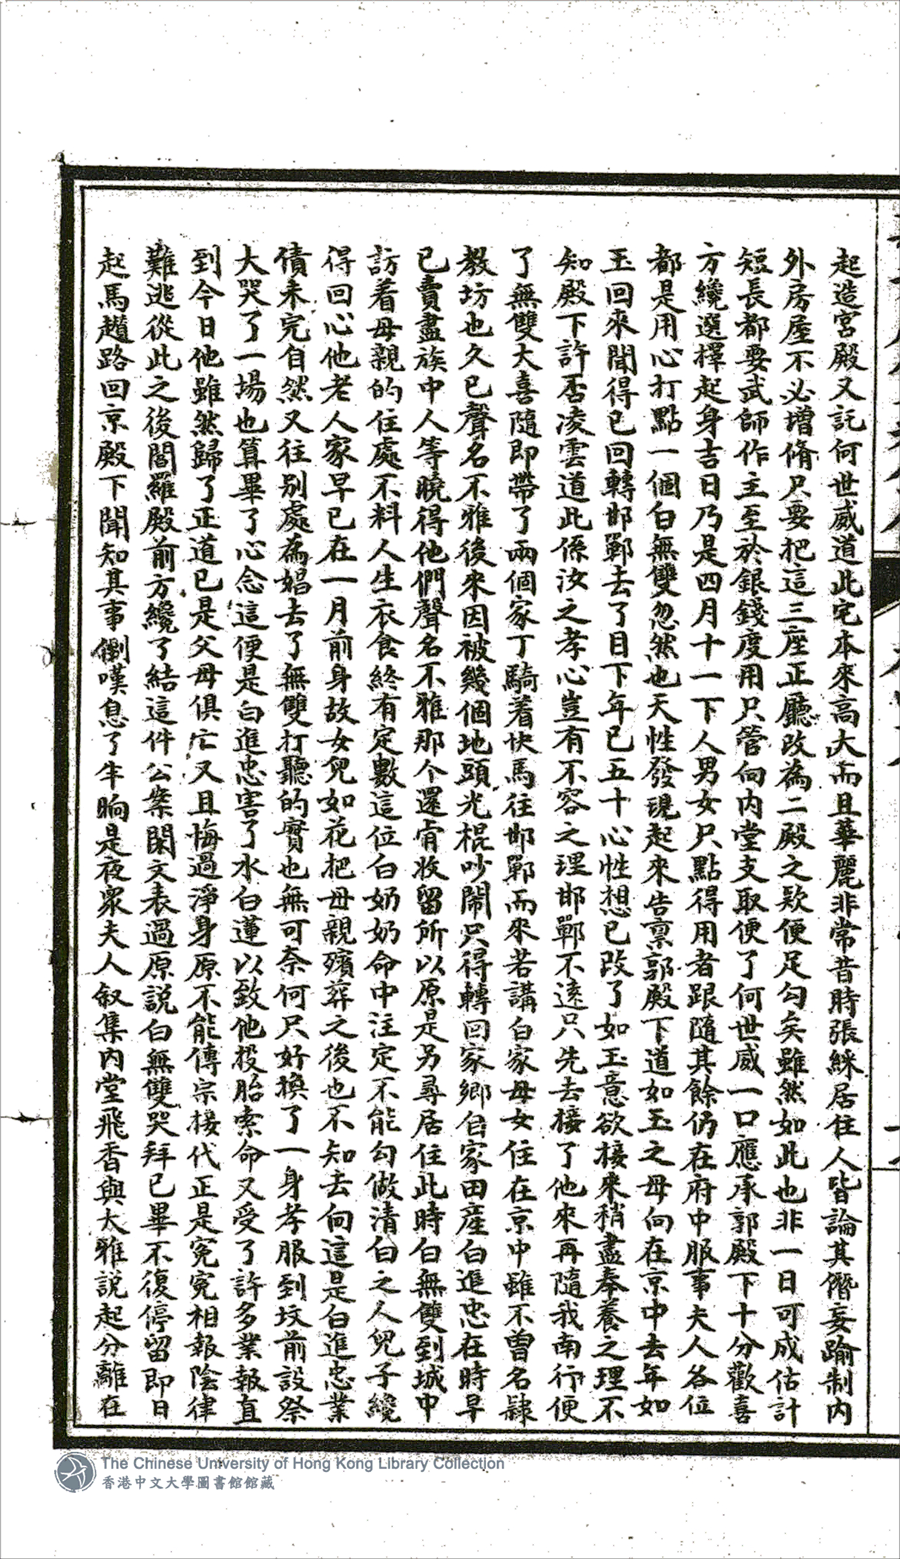 起造宮殿又託何世威道此宅本來高大而且華麗非常昔時張綵居住人皆論其僭妄踰制內
外房屋不必增脩只要把這三座正廳改為二殿之款便足勾矣雖然如此也非一日可成估計
短長都要武師作主至於銀錢度用只管向內堂支取便了何世威一口應承郭殿下十分歡喜
方纔選擇起身吉日乃是四月十一下人男女只點得用者跟隨其餘仍在府中服事夫人各位
都是用心打點一個白無雙忽然也天性發現起來告禀郭殿下道如玉之母向在京中去年如
玉回來聞得已回轉邯鄲去了目下年已五十心性想已改了如玉意欲接來稍盡奉養之理不
知殿下許否凌雲道此係汝之孝心豈有不容之理邯鄲不遠只先去接了他來再隨我南行便
了無雙大喜隨即帶了兩個家丁騎着快馬往邯鄲而來若講白家母女住在京中雖不曾名肄
教坊也久已聲名不雅後來因被幾個地頭光棍吵鬧只得轉回家鄉自家田產白進忠在時早
已賣盡族中人等曉得他們聲名不雅那个還肯收留所以原是另尋居住此時白無雙到城中
訪着母親的住處不料人生衣食終有定數這位白奶奶命中注定不能勾做清白之人兒子纔
得回心他老人家早已在一月前身故女兒如花把母親殯葬之後也不知去向這是白進忠業
債未完自然又往別處為娼去了無雙打聽的實也無可奈何只好換了一身孝服到坟前設祭
大哭了一場也算畢了心念這便是白進忠害了水白蓮以致他投胎索命又受了許多業報直
到今日他雖然歸了正道已是父母俱亡又且悔過淨身原不能傳宗接代正是冤冤相報陰律
難逃從此之後閻羅殿前方纔了結這件公案閑文表過原說白無雙哭拜已畢不復停留即日
起馬趲路回京殿下聞知其事倒嘆息了半晌是夜眾夫人叙集內堂飛香與大雅說起分離在
The Chinese University of Hong Kong Library Collection
香港中文大學圖書館館藏